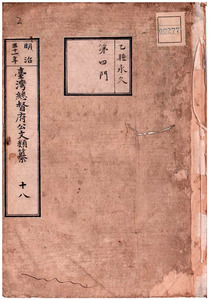 乙種永久
第四門
明治
三十一年
臺灣總督府公文類纂
十八
2